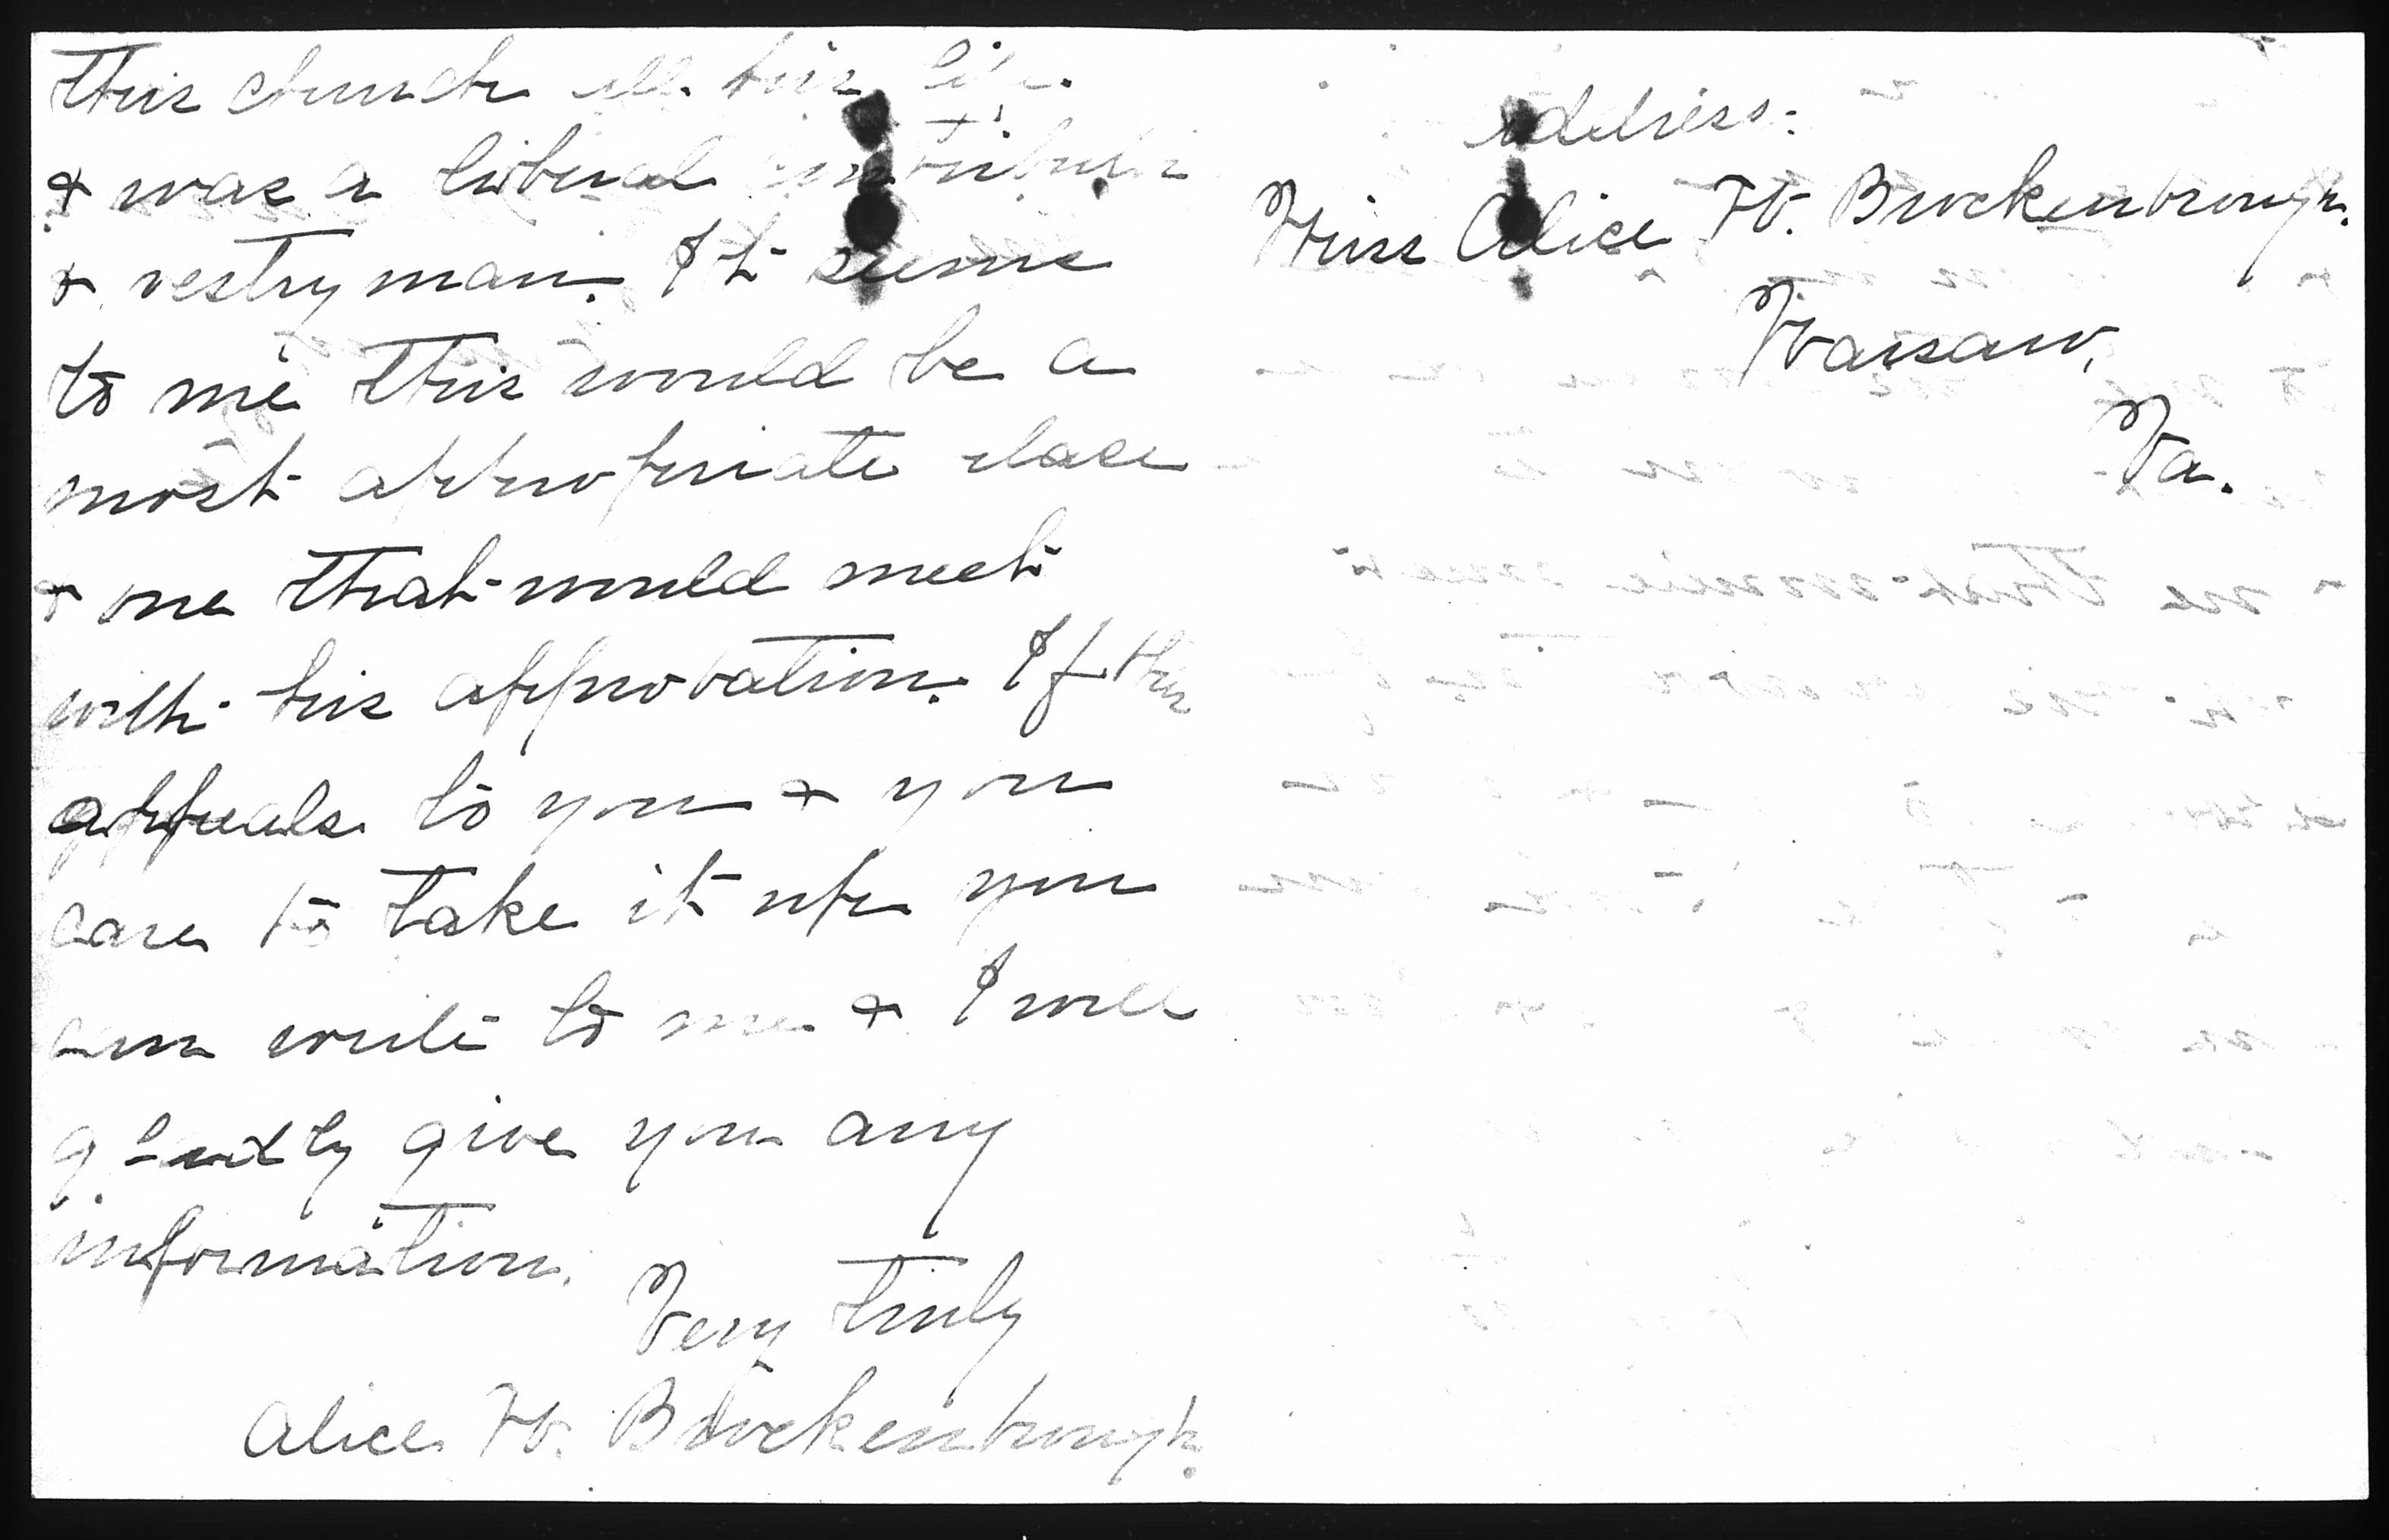 this church all his life
& was a liberal contributor
& vestryman. It seems
to me this would be a
most appropriate place
& one that would meet
with his approbation. If this
appeals to you & you
care to take it up you
can write to me & I will
gladly give you any
information.
Very truly
Alice H. Brockenbrough.
Address:
Miss Alice H. Brockenbrough.
Warsaw,
Va.